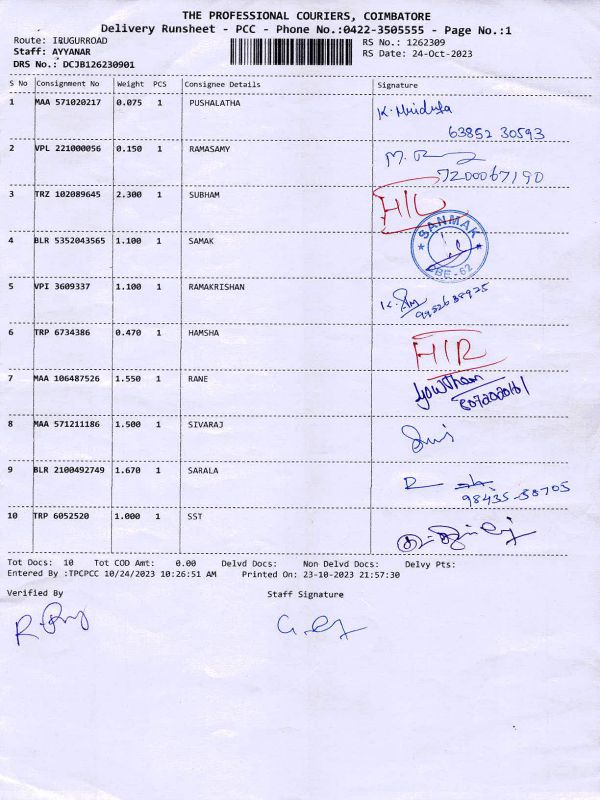 THE PROFESSIONAL COURIERS, COIMBATORE
Delivery Runsheet - PCC - Phone No.:0422-3505555 - Page No.:1
Route: IRUGURROAD
RS No.: 1262309
Staff: AYYANAR
RS Date: 24-Oct-2023
DRS No.: DCJB126230901
S No Consignment No Weight PCS Consignee Details Signature
1 MAA 571020217 0.075 1 PUSHALATHA K. Mridula
63852 30593
2 VPL 221000056 0.150 1 RAMASAMY
7200067190
3 TRZ 102089645 2.300 1 SUBHAM
SANMAK
4 BLR 5352043565 1.100 1 SAMAK
CBE-62
5 VPI 3609337 1.100 1 RAMAKRISHAN
6 TRP 6734386 0.470 1 HAMSHA
H/R
7 MAA 106487526 1.550 1 RANE
8 MAA 571211186 1.500 1 SIVARAJ
9 BLR 2100492749 1.670 1 SARALA
98435-58705
10 TRP 6052520 1.000 1 SST
Tot Docs: 10 Tot COD Amt: 0.00 Delvd Docs: Non Delvd Docs: Delvy Pts:
Entered By :TPCPCC 10/24/2023 10:26:51 AM Printed On: 23-10-2023 21:57:30
Verified By Staff Signature